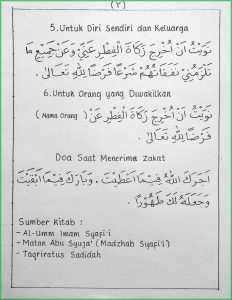 (٢)
5. Untuk Diri Sendiri dan Keluarga
نَوَيْتُ اَنْ اُخْرِجَ زَكَاةَ الْفِطْرِ عَنِّيْ وَعَنْ جَمِيْعِ مَا
تَلْزَمُنِيْ نَفَقَاتُهُمْ شَرْعًا فَرْضًا لِلّٰهِ تَعَالَى.
6. Untuk Orang yang Diwakilkan
نَوَيْتُ اَنْ اُخْرِجَ زَكَاةَ الْفِطْرِ عَنْ (Nama Orang)
فَرْضًا لِلّٰهِ تَعَالَى.
Doa Saat Menerima Zakat
اٰجَرَكَ اللّٰهُ فِيْمَا اَعْطَيْتَ، وَبَارَكَ فِيْمَا اَبْقَيْتَ
وَجَعَلَهُ لَكَ طَهُوْرًا.
Sumber Kitab :
- Al-Umm Imam Syafi'i
- Matan Abu Syuja' (Madzhab Syafi'i)
- Taqriratus Sadidah